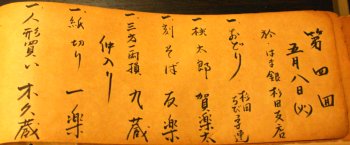 第四回
五月八日(火)
於・はま銀杉田支店
一、おどり 杉田ちどり連
一、桃太郎 賀楽太
一、刻そば 友楽
一、三方一両損 九蔵
仲入り
一、紙切り 一楽
一、人形買い 木久蔵